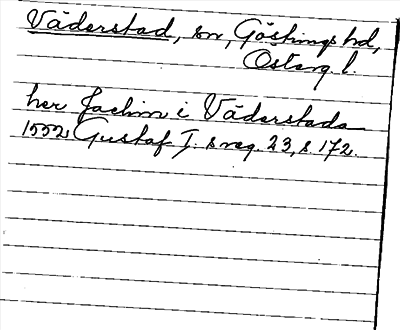 Väderstad, sn, Göstrings hd,
Österg. l.
her Jachim i Väderstada
1552 Gustaf I. s reg. 23, s. 172.